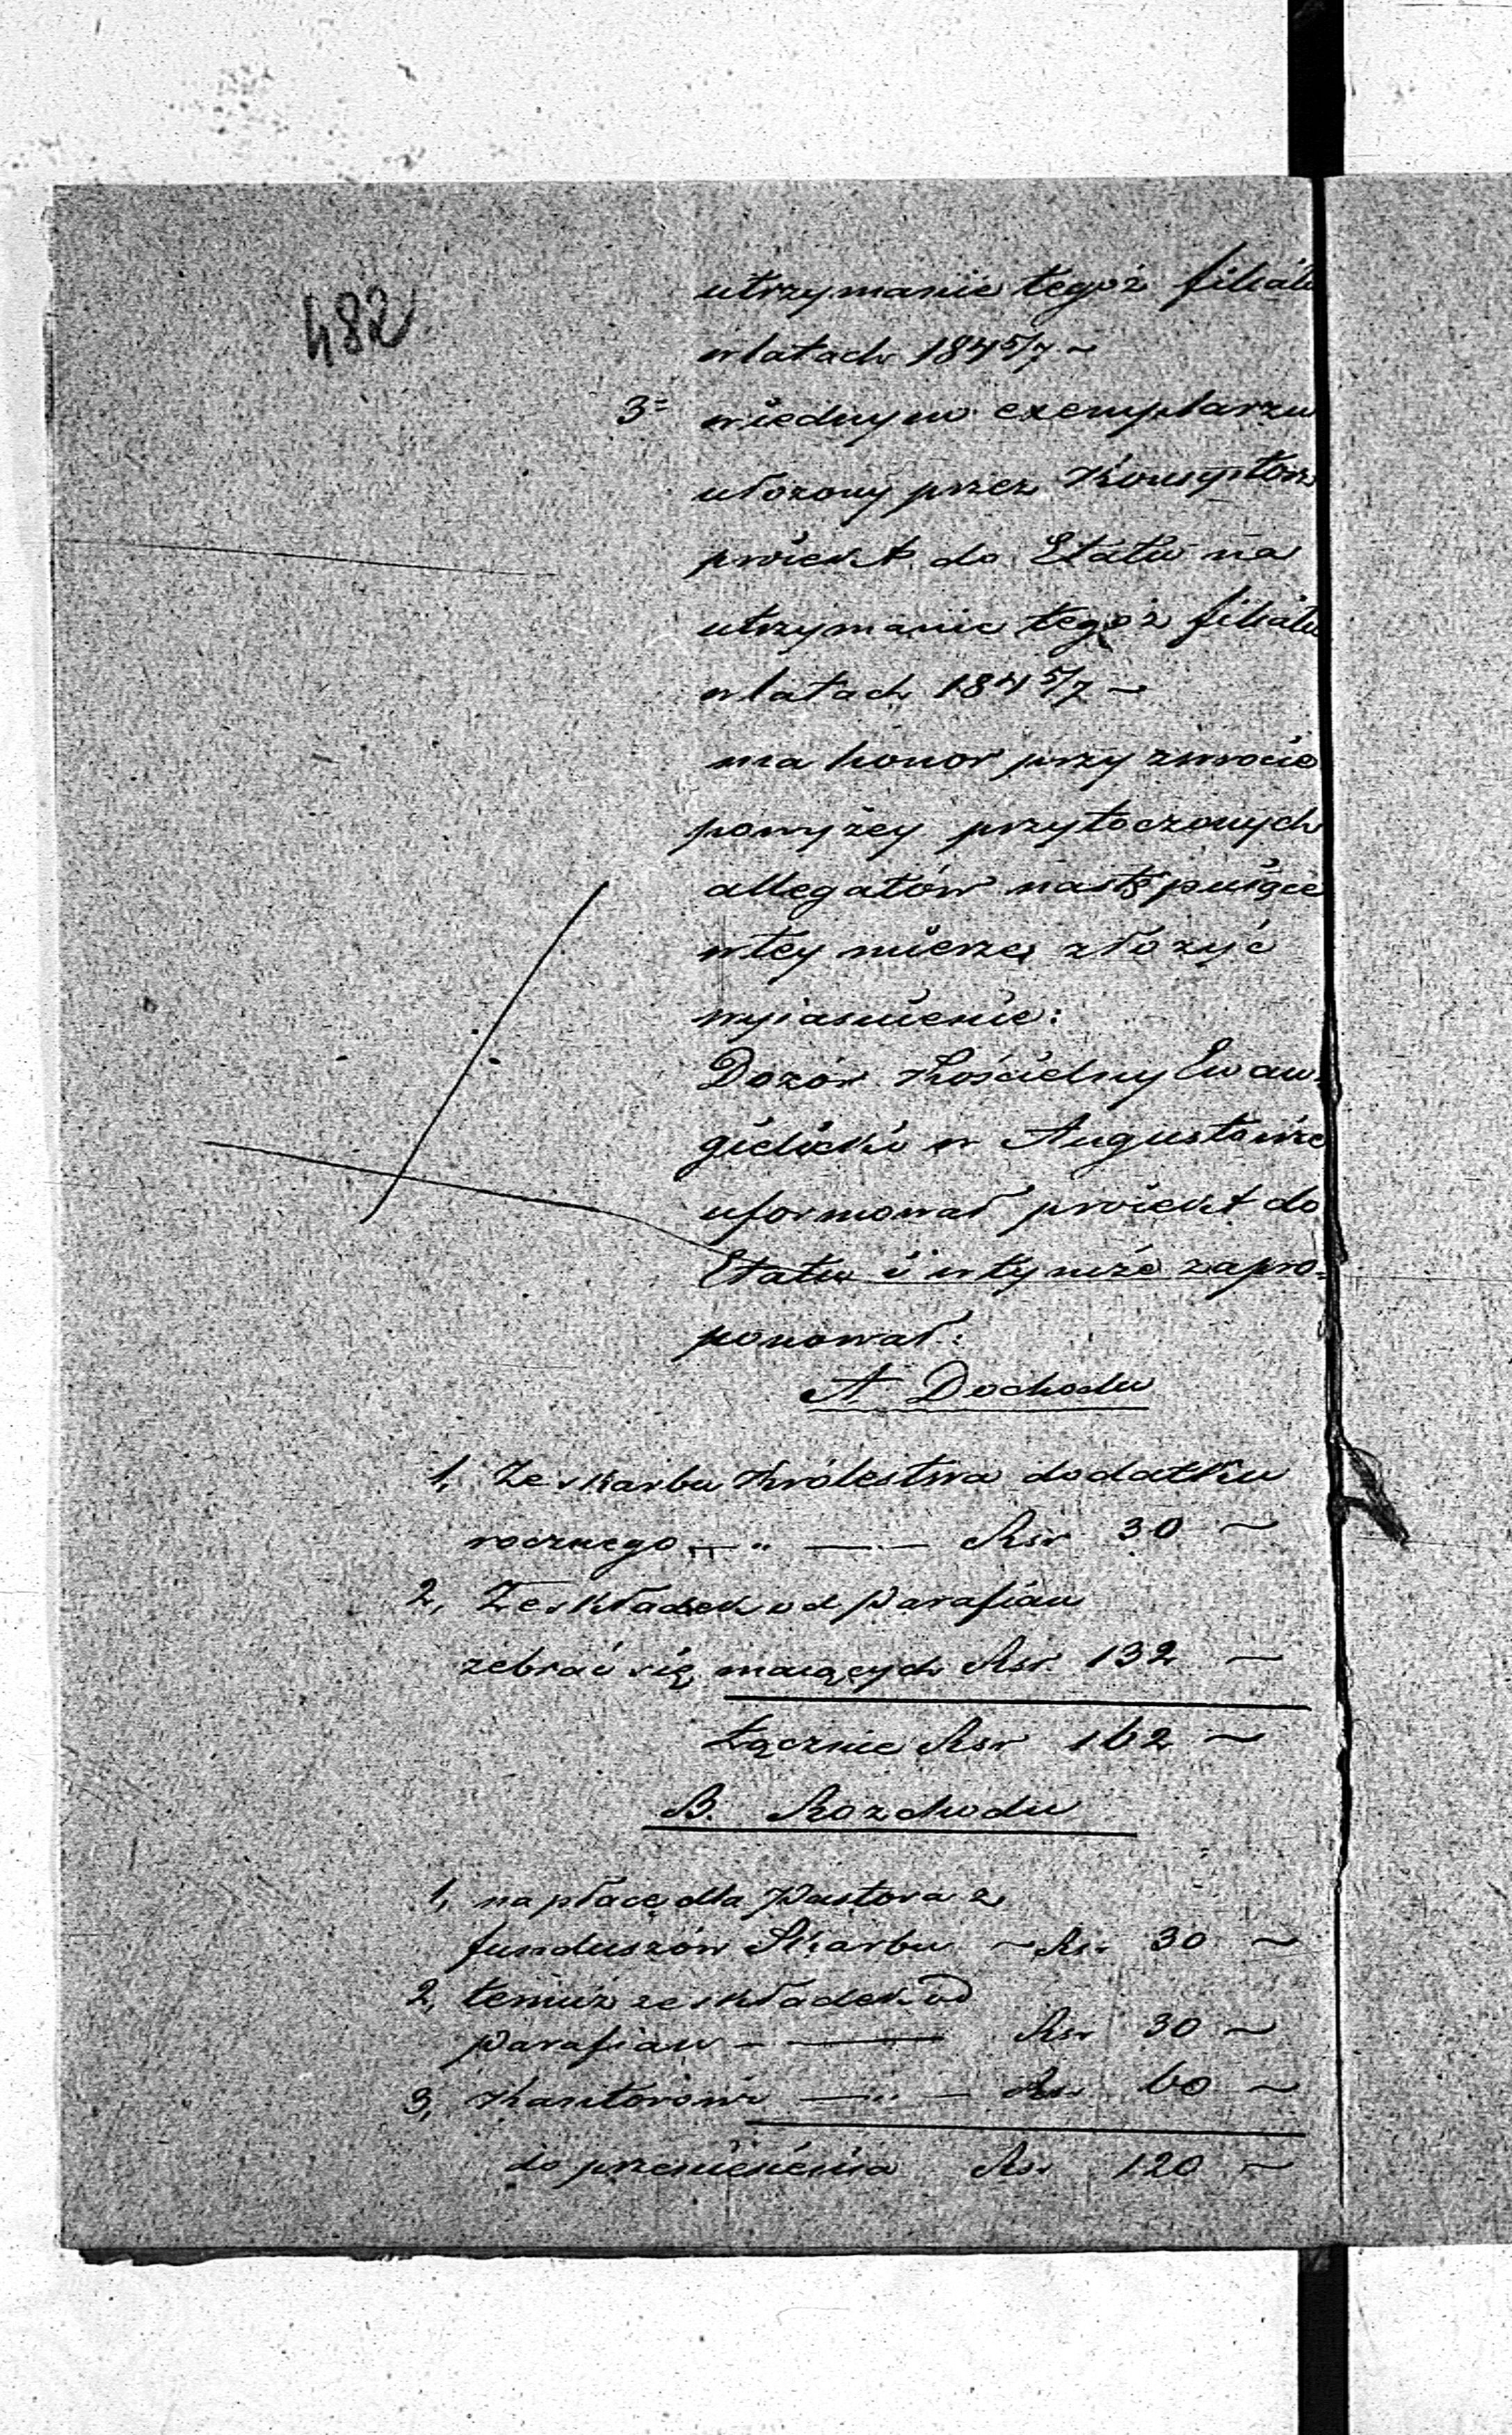 482
utrzymanie tegoż filiału
w latach 184 5/7 ~
3= w iednym exemplarzu
ułożony przez Konsystorz
proiekt do Etatu na
utrzymanie tegoż filiału
w latach 184 5/7 ~
ma honor przy zwrocie
powyżey przytoczonych
allegatów nastę puiące
w tey mierze złożyć
wyiasnienie:
Dozór Kościelny Ewan=
gielicki w Augustowie
uformował proiekt do
Etatu i w tymże zapro=
ponował:
A Dochodu
1, Ze skarbu Królestwa dodatku
rocznego — " — — Rsr 30 ~
2, Ze składek od Parafian
zebrać się maiących Rsr. 132 ~
Łącznie Rsr 162 ~
B. Rozchodu
1, na płacę dla Pastora z
funduszów Skarbu ~ Rsr 30 ~
2, temuż ze składek od
Parafian — — Rsr 30 ~
3, Kantorowi — " — Rsr 60 ~
do przeniesienia Rsr 120 ~